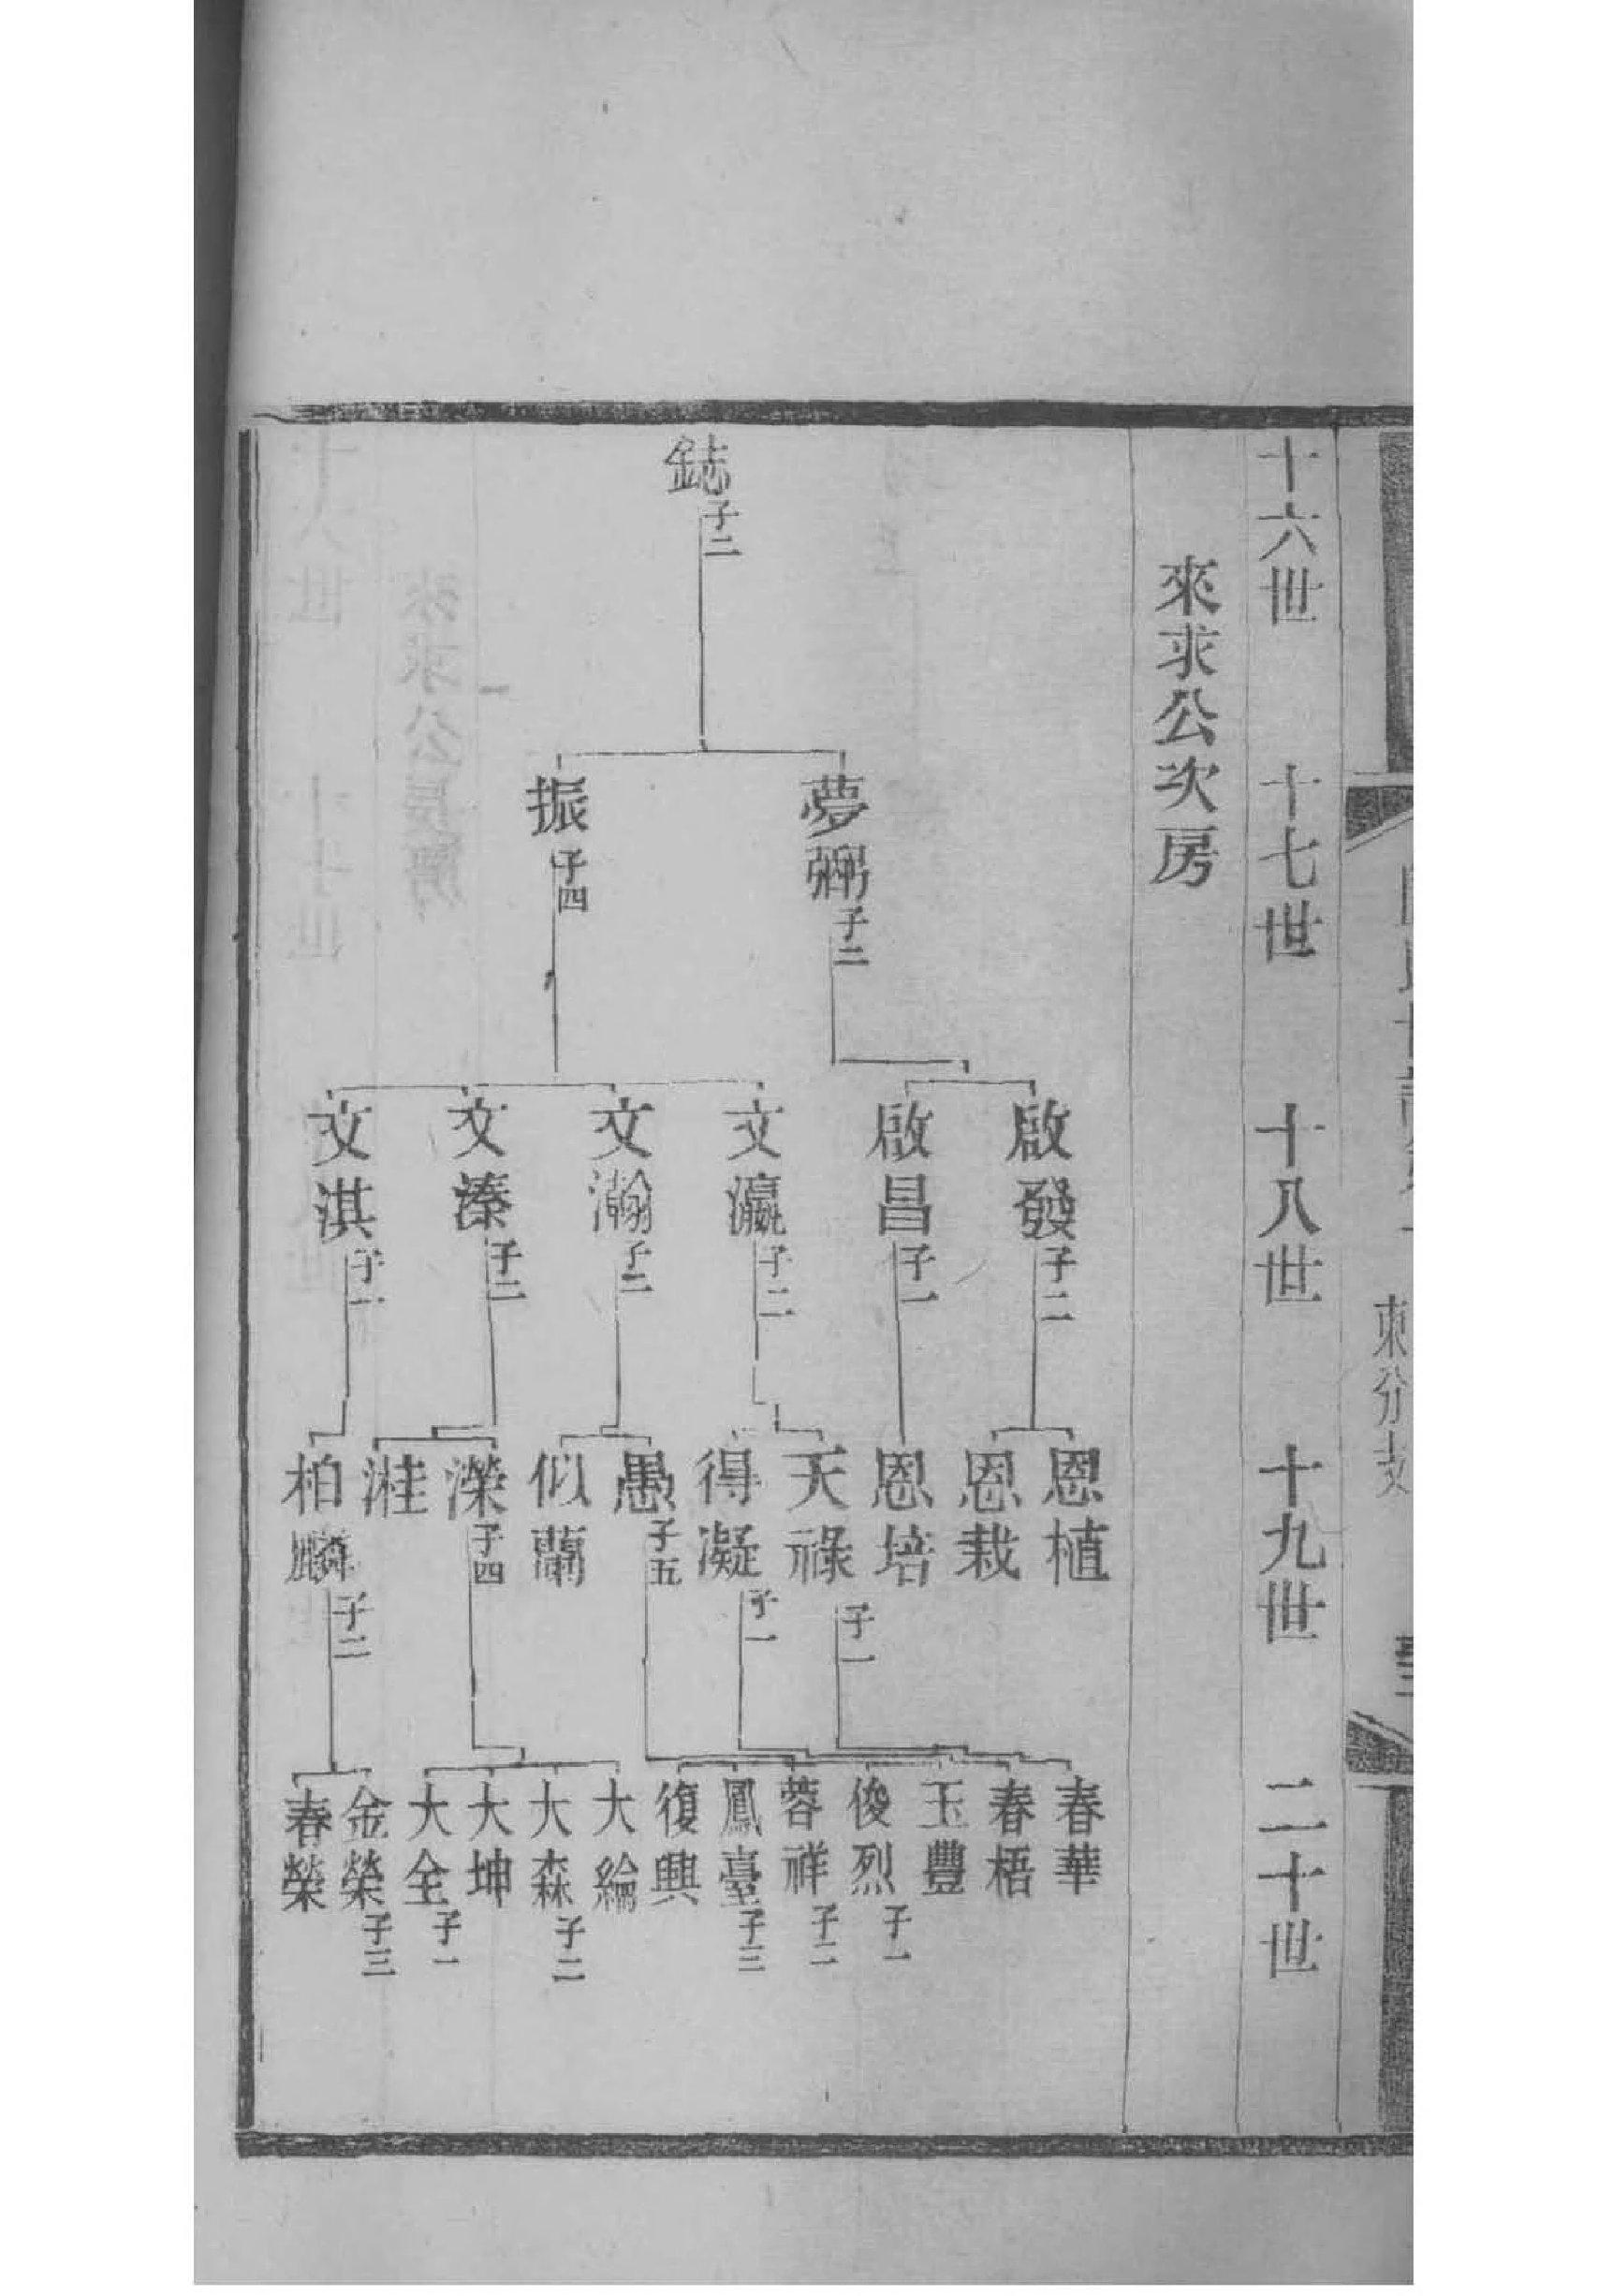 十六世 十七世 十八世 十九世 二十世
來求公次房
鋕子二
夢弼子二
振子四
啟發子二
啟昌子一
文瀛子二
文瀚子二
文溱子二
文淇子一
恩植
恩栽
恩培
天祿子一
得凝子一
愚子五
似蘭
濚子四
溎
柏麟子二
春華
春梧
玉豐
俊烈子一
蓉祥子二
鳳臺子三
復興
大綸
大森子二
大坤
大全子一
金榮子三
春榮